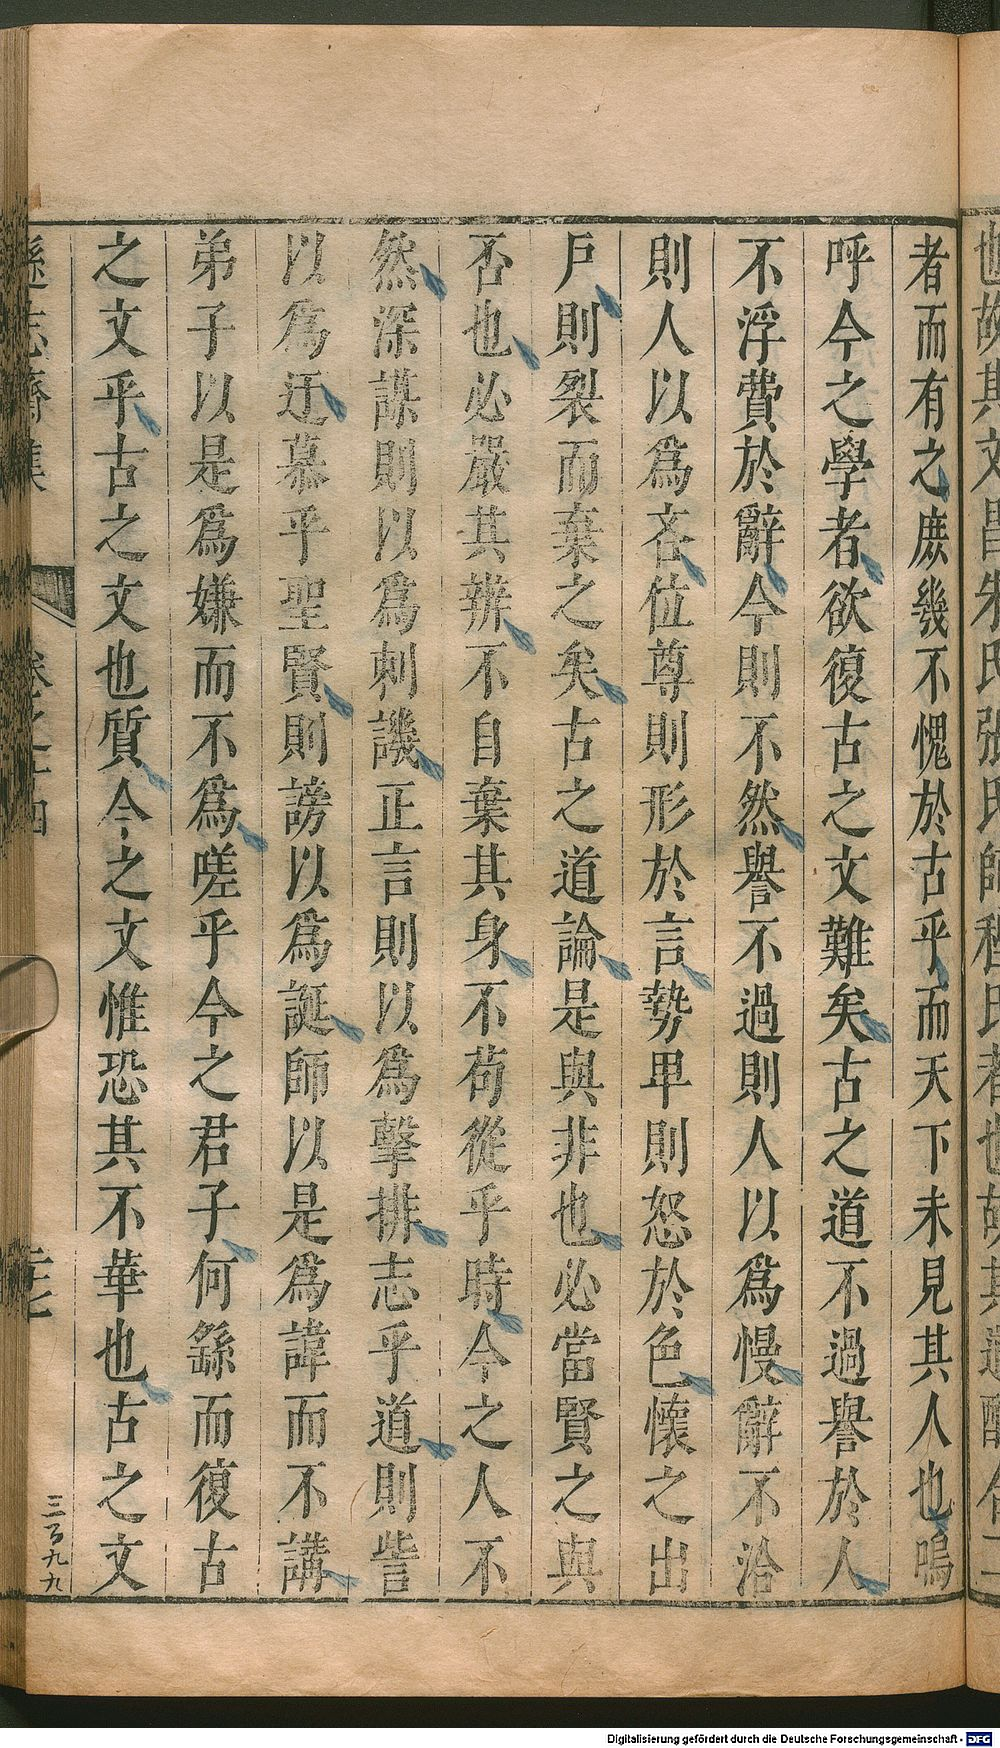 者而有之庶幾不愧於古乎而天下未見其人也嗚
呼今之學者欲復古之文難矣古之道不過譽於人
不浮費於辭今則不然譽不過則人以爲慢辭不洽
則人以爲吝位尊則形於言勢卑則怒於色懷之出
戶則裂而棄之矣古之道論是與非也必當賢之與
否也必嚴其辨不自棄其身不苟從乎時今之人不
然深謀則以爲刺譏正言則以爲擊排志乎道則訾
以爲迂慕乎聖賢則謗以爲誕師以是爲諱而不講
弟子以是爲嫌而不爲嗟乎今之君子何繇而復古
之文乎古之文也質今之文惟恐其不華也古之文
遜志齋集 卷之十四
三百九九
Digitalisierung gefördert durch die Deutsche Forschungsgemeinschaft - DFG